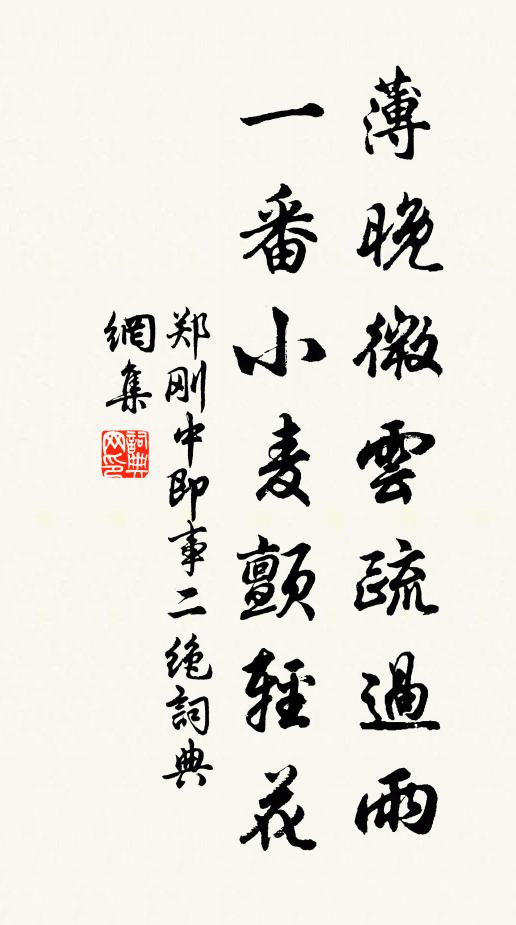 薄晚微雲疏過雨
一番小麦顫輕花
郑刚中即事二絶詞典
網集
詞典
网印